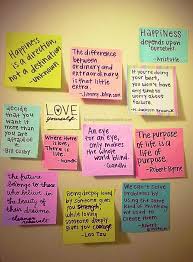 Happiness
is a direction,
not a destination
-unknown
The difference
between
ordinary and
extraordinary
is that little
extra.
-Jimmy Johnson
Happiness
depends upon
ourselves
-Aristotle
If you're doing
your best,
you won't have
time to worry
about failure.
decide that
you want it
more than
you are
afraid of it
Bill Cosby
LOVE
yourself
Where there
is love,
there is
life.
-Gandhi
An eye for
an eye,
only makes
the whole
world blind
Gandhi
The purpose
of life is a
life of
purpose.
-Robert Byrne
The future
belongs to those
who believe in
the beauty
of their dreams
Being deeply loved
by someone gives
you strength,
while loving
someone deeply
gives you courage.
-Lao Tzu
We can't solve
problems by
using the same
kind of thinking
we used when